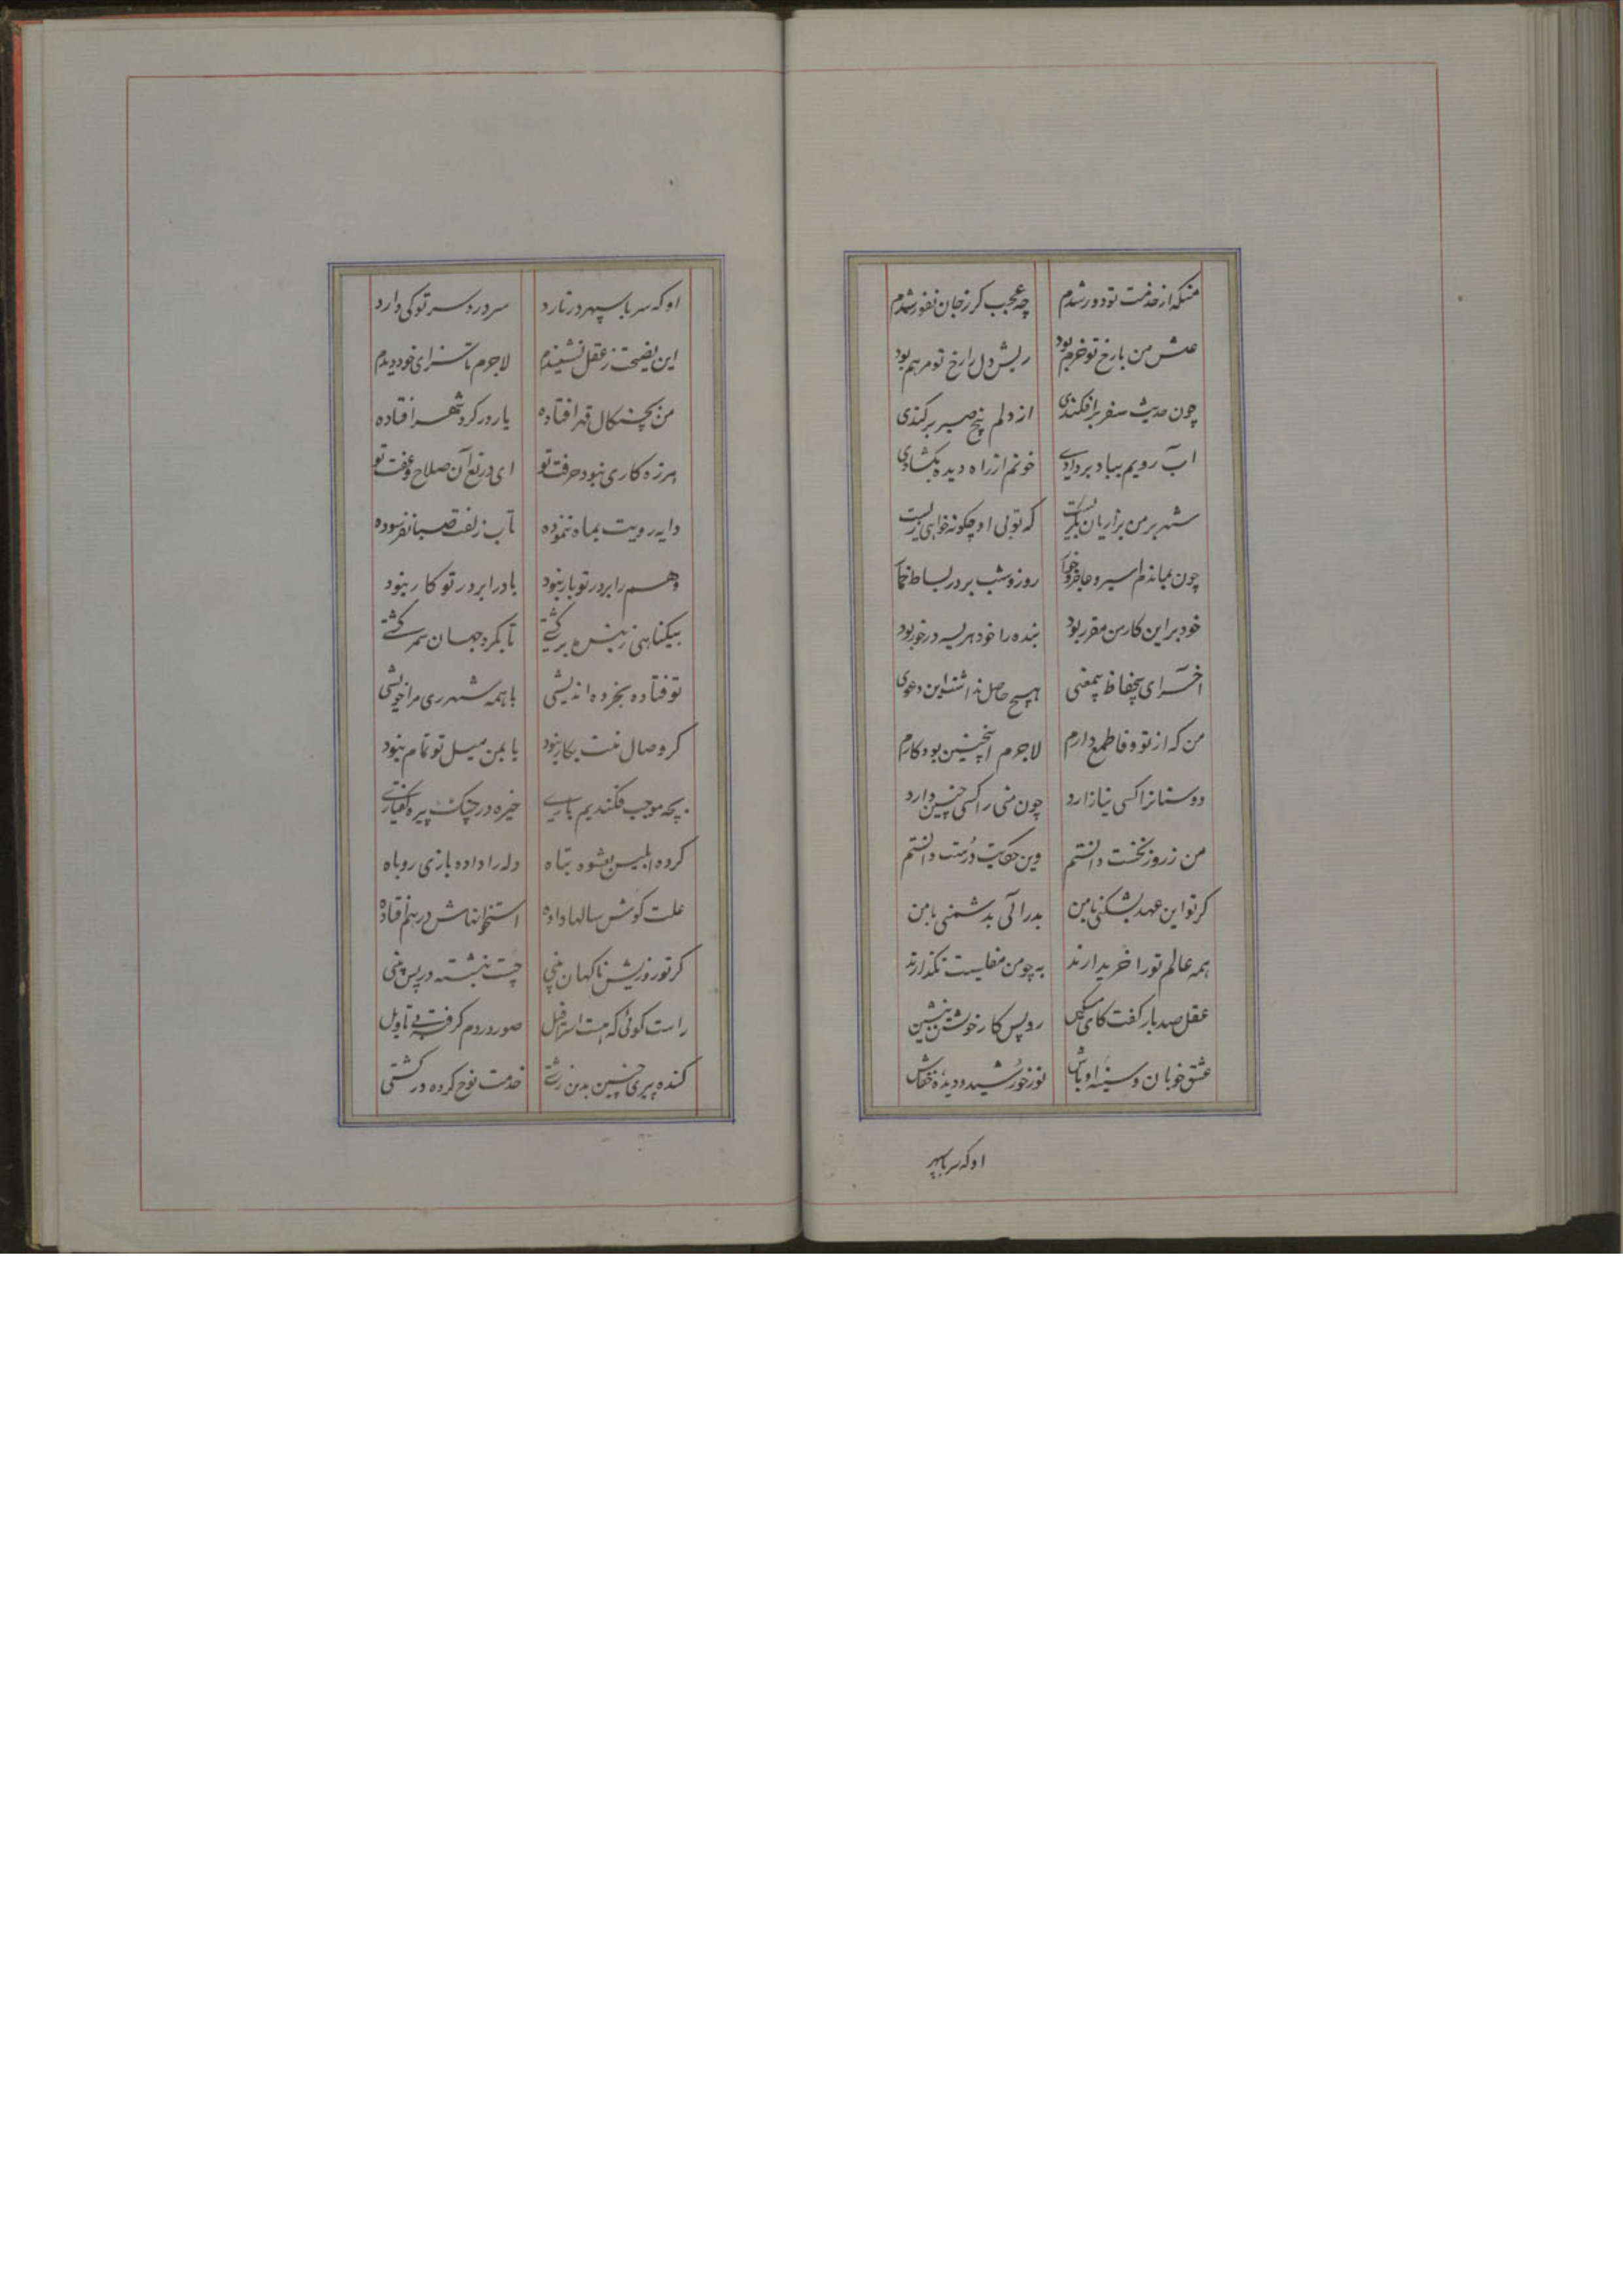 منکه از خدمت تو دور شدم چه عجب کر زجان نفور شدم
عیش من با رخ تو خرم بود ریش دل را رخ تو مرهم بود
چون حدیث سفر برافکندی از دلم بیخ صبر برکندی
آب رویم بباد بر دادی خونم از راه دیده بکشادی
شهر بر من بزاریان بکریست که تو بی او چکونه خواهی زیست
چون بماندم اسیر و روز و شب بر در
خود بر این کار من مقرر بود بنده را خود هر بد در خور بود
آخر ای بیحفاظ بیمعنی هیچ حاصل نداشت این دعوی
من که از تو وفا طمع دارم لاجرم اینچنین بود کارم
دوستانرا کسی نیازارد چون منی را کسی چنین دارد
من ز روز نخست دانستم وین حکایت درست دانستم
کر تو این عهد بشکنی با من بدر آئی بدشمنی با من
همه عالم تو را خریدارند به چو من مفلسیت نکذارند
عقل صد بار کفت کای مسکین رو پس کار خویشتن بنشین
عشق خوبان و سینۀ اوباش نور خورشید و دیدۀ خفاش
او که سر با سپهر
او که سر با سپهر در نارد سر در و سر تو کی دارد
این نصیحت ز عقل نشنیدم لاجرم تا سزای خود دیدم
من بچنکال قهر افتاده یار در کرد شهر افتاده
هرزه کاری نبود حرفت تو ای دریغ آن صلاح و عفت تو
دایه رویت بماه ننموده تاب زلفت صبا نفرسوده
وهم را بر در تو بار نبود باد را بر در تو کار نبود
بیکناهی ز من برکشتی تا بکرد جهان سمر کشتی
تو فتاده بخرده اندیشی با همه شهر ری مرا خویشی
کر وصال منت بکار نبود یا بمن میل تو تمام نبود
بچه موجب فکندیم باری خیره در چنک پیره کفتاری
کرده ابلیس بشوه تباه دله را داده بازی روباه
علت کوش سالها داده استخوانهاش درهم افتاده
کر تو روزیش ناکهان بینی چست بنشسته در پس بینی
راست کوئی که هست اسرافیل صور در دم کرفته بی تاویل
کنده پیری چنین بدین زشتی خدمت نوح کرده در کشتی